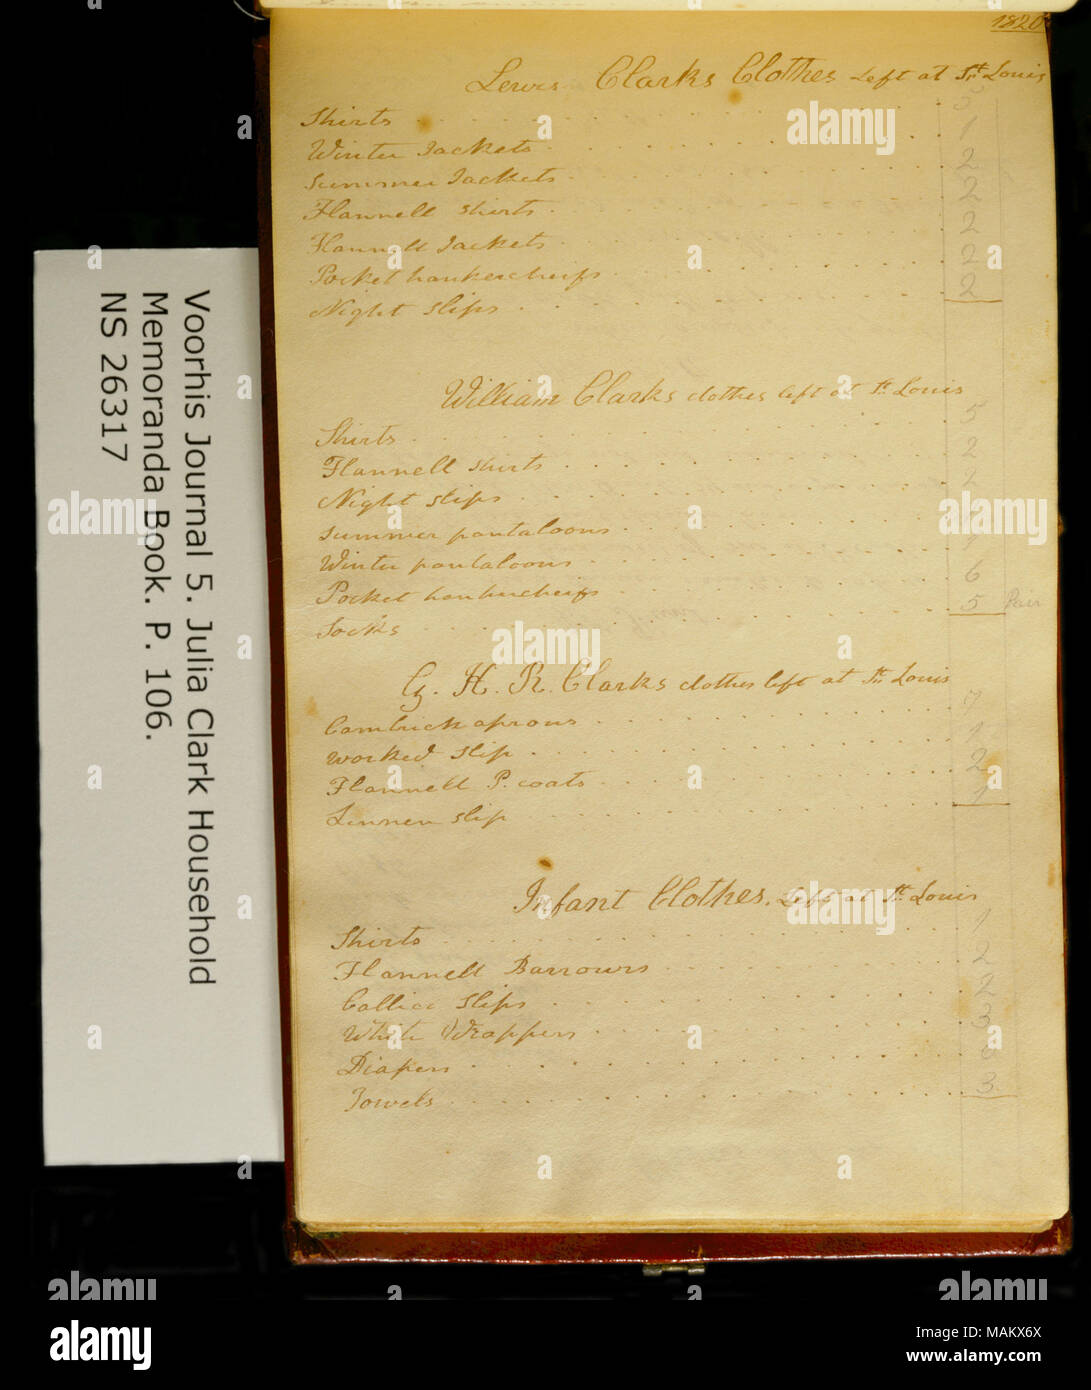 1820
Lewis Clarks Clothes Left at St. Louis
Shirts 5
Winter Jackets 1
Summer Jackets 2
Flannell Shirts 2
Flannell Jackets 2
Pocket hankercheifs 2
Night Slips 2
William Clarks clothes left at St. Louis
Shirts 5
Flannell Shirts 2
Night Slips 2
Summer pantaloons
Winter pantaloons 1
Pocket hankercheifs 6
Socks 5 Pair
G. H. R. Clarks clothes left at St. Louis
Cambrick aprons 7
Worked Slip 1
Flannell P. coats 2
Linnen Slip 1
Infant Clothes. Left at St. Louis
Shirts 1
Flannell Barrours 2
Callico Slips 2
White Wrappers 3
Diapers 6
Towels 3
Voorhis Journal 5. Julia Clark Household
Memoranda Book. P. 106.
NS 26317
alamy
alamy
Image ID: MAKX6X
www.alamy.com